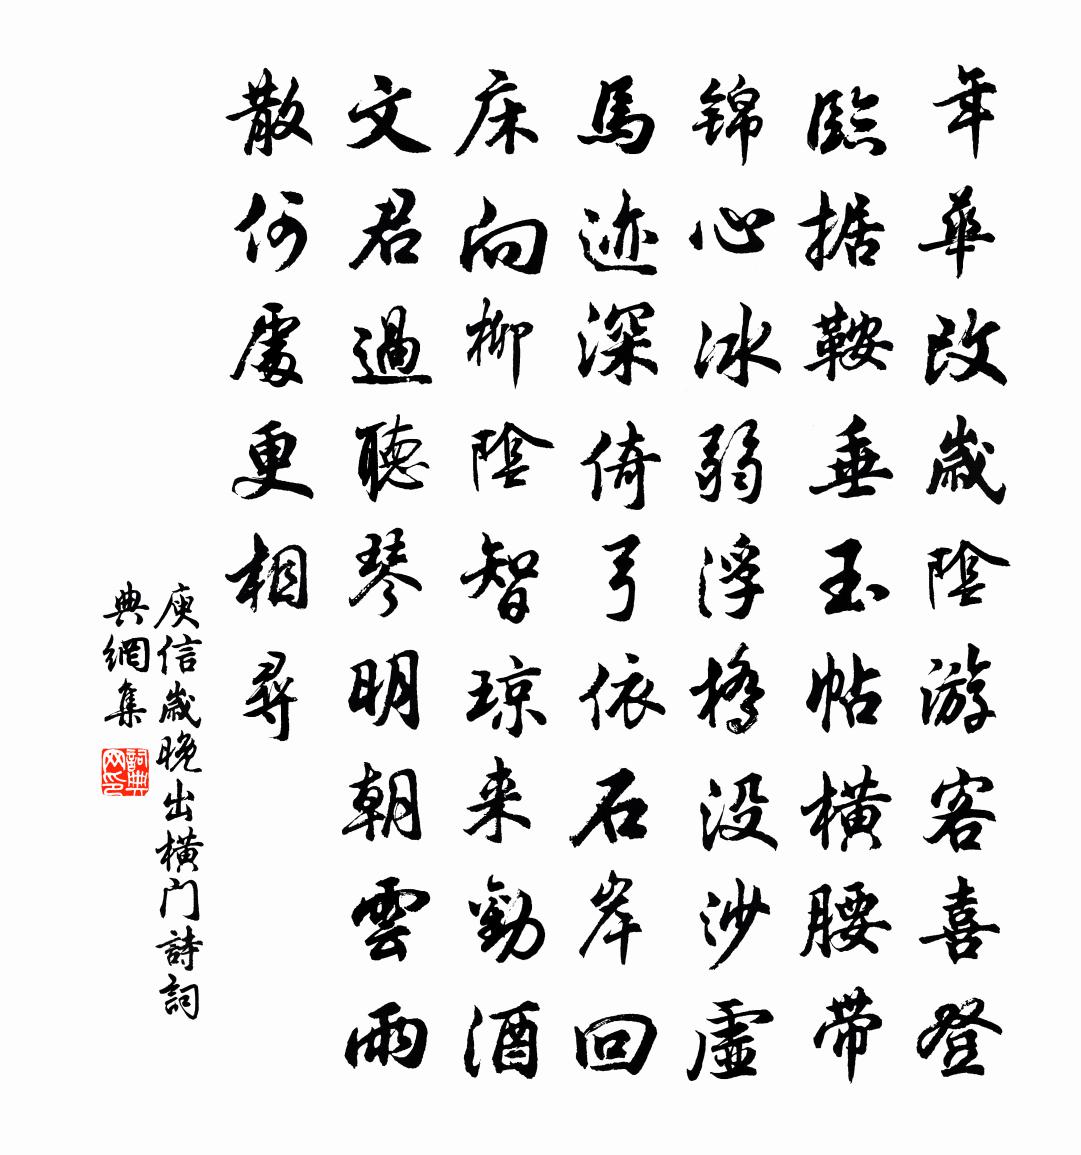 年華改歲陰游客喜登
臨据鞍垂玉帖橫腰帶
锦心冰弱浮橋没沙虛
馬迹深倚弓依石岸回
床向柳陰智琼来勸酒
文君過聽琴明朝雲雨
散何處更相尋
庾信歲晚出橫门詩詞
典網集
詞典
网印